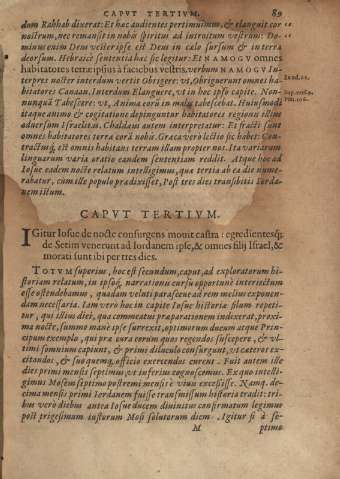 CAPVT TERTIVM. 89
dom Rahab dixerat: Et hoc audientes pertimuimus, & elanguit cor
nostrum, nec remansit in nobis spiritus ad introitum vestrum: Do-
minus enim Deus vester ipse est Deus in cælo sursum & in terra
deorsum. Hebraicè sententia hæc sic legitur: EINAMOGV omnes
habitatores terræ ipsius à faciebus vestris. verbum NAMOGV In-
terpres noster interdum vertit Obrigere: vt, Obriguerunt omnes ha-
bitatores Canaan. Interdum Elanguere, vt in hoc ipso capite. Non-
nunquã Tabescere: vt, Anima eorũ in malis tabescebat. Huiusmodi
itaque animo & cogitatione depinguntur habitatores regionis illius
aduersum Israelitas. Chaldæus autem interpretatur: Et fracti sunt
omnes habitatores terræ corã nobis. Græca verò lectio sic habet: Con-
tractusq́; est omnis habitans terram illam propter nos. Ita variarum
linguarum varia oratio eandem sententiam reddit. Atque hoc ad
Iosue eadem nocte relatum intelligimus, qua tertia ab ea die nume-
rabatur, cum ille populo prædixisset, Post tres dies transibitis Iorda-
nem istum.
Exod. 15.
CAPVT TERTIVM.
IGitur Iosue de nocte consurgens mouit castra: egredientesq́;
de Setim venerunt ad Iordanem ipse, & omnes filij Israel, &
morati sunt ibi per tres dies.
TOTVM superius, hoc est secundum, caput, ad exploratorum hi-
storiam relatum, in ipsoq́; narrationis cursu opportunè interiectum
esse ostendebamus, quædam velut parasceue ad rem melius exponen-
dam necessaria. Iam vero hoc in capite Iosue historiæ filum repeti-
tur, qui istius diei, qua commeatus præparationem indixerat, proxi-
ma nocte, summo mane ipse surrexit, optimorum ducum atque Prin-
cipum exemplo, qui præ cura eorum quos regendos suscepere, & vl-
timi somnium capiunt, & primi diluculo consurgunt, vt cæteros ex-
citandos, & suo quemq́; officio extrecendos curent. Fuit autem ille
dies primi mensis septimus, vt inferius cognoscemus. Ex quo intelli-
gimus Mosem septimo postremi mensis è viuis excessisse. Namq́; de-
cima mensis primi Iordanem fuisse transmissum historia tradit: tri-
bus verò diebus antea Iosue ducem diuinitus confirmatum legimus
post trigesimum iusturum Mosi solutarum diem. Igitur si à se-
M ptimo